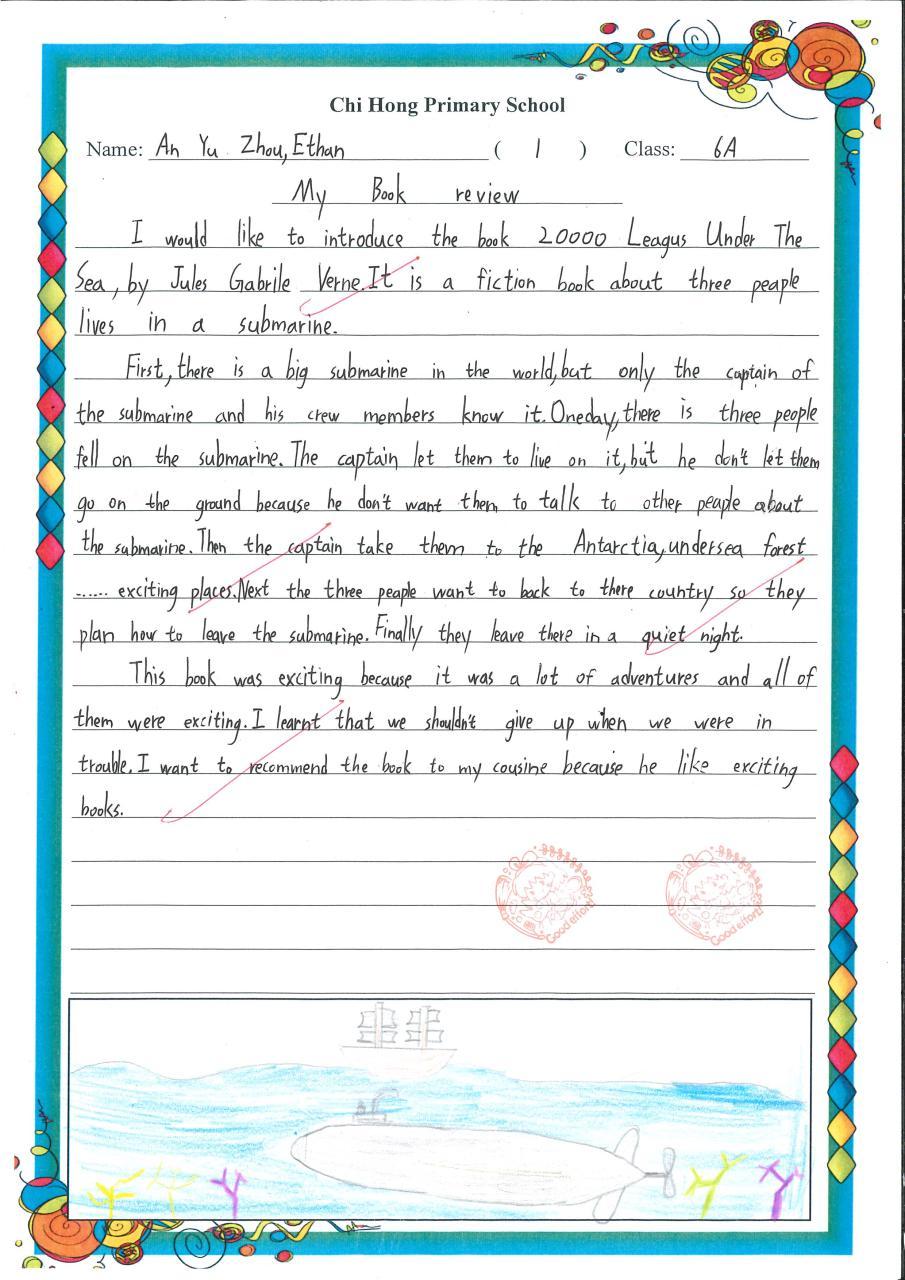 Chi Hong Primary School
Name: An Yu Zhou, Ethan ( 1 ) Class: 6A
My Book review
I would like to introduce the book 20000 Leagus Under The
Sea, by Jules Gabrile Verne. It is a fiction book about three people
lives in a submarine.
First, there is a big submarine in the world, but only the captain of
the submarine and his crew members know it. Oneday, there is three people
fell on the submarine. The captain let them to live on it, but he don't let them
go on the ground because he don't want them to talk to other people about
the submarine. Then the captain take them to the Antarctia, undersea forest
...... exciting places. Next the three people want to back to there country so they
plan how to leave the submarine. Finally they leave there in a quiet night.
This book was exciting because it was a lot of adventures and all of
them were exciting. I learnt that we shouldn't give up when we were in
trouble. I want to recommend the book to my cousine because he like exciting
books.
Good effort!
Good effort!